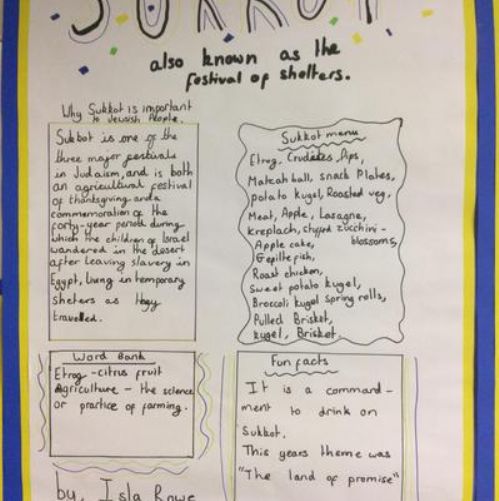 SUKKOT
also known as the
festival of shelters.
Why Sukkot is important
to Jewish People.
Sukkot is one of the
three major festivals
in Judaism, and is both
an agricultural festival
of thanksgiving and a
commemoration of the
forty-year period during
which the children of Israel
wandered in the desert
after leaving slavery in
Egypt, living in temporary
shelters as they
travelled.
Sukkot menu
Etrog, Crudites, Dips,
Matzah ball, snack Plates,
potato kugel, Roasted veg,
Meat, Apple, Lasagne,
kreplach, stuffed zucchini-
blossoms,
Apple cake,
Gefilte fish,
Roast chicken,
Sweet potato kugel,
Broccoli kugel spring rolls,
Pulled Brisket,
kugel, Brisket.
Word Bank
Etrog - citrus fruit
Agriculture - the science
or practice of farming.
Fun facts
It is a command-
ment to drink on
Sukkot.
This years theme was
"The land of promise"
by, Isla Rowe